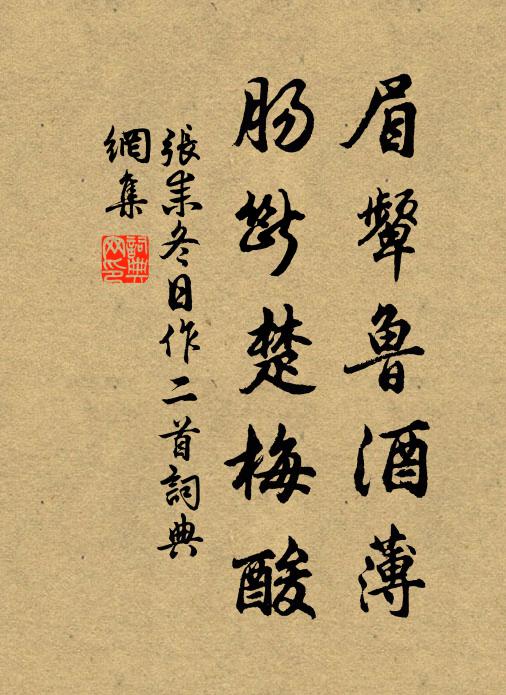 眉顰魯酒薄
腸斷楚梅酸
張耒冬日作二首詞典
網集
詞典
网印